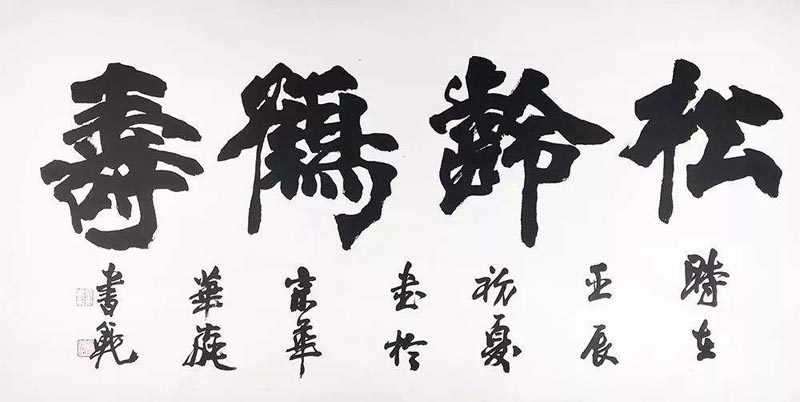 松齡鶴壽
時在
壬辰
初夏
書於
京華
華
書